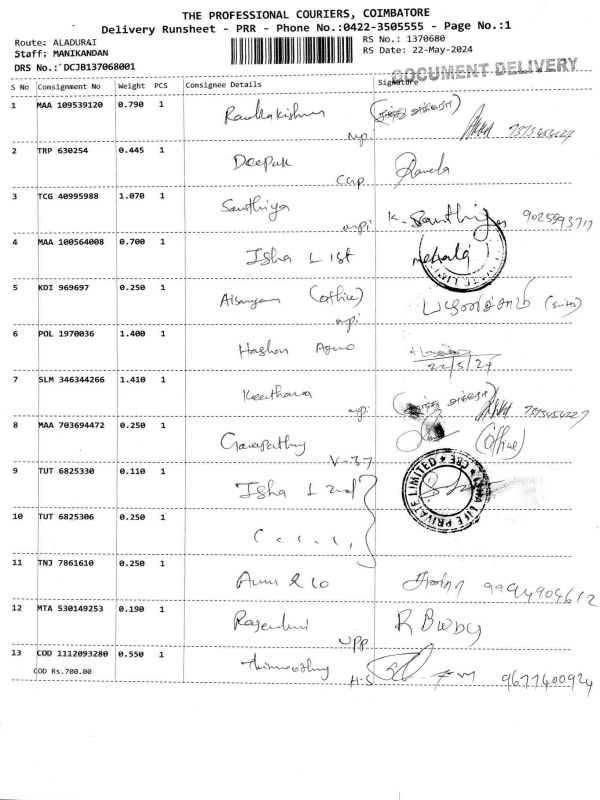 THE PROFESSIONAL COURIERS, COIMBATORE
Delivery Runsheet - PRR - Phone No.:0422-3505555 - Page No.:1
Route: ALADURAI
Staff: MANIKANDAN
DRS No.: DCJB137068001
RS No.: 1370680
RS Date: 22-May-2024
DOCUMENT DELIVERY
S No Consignment No Weight PCS Consignee Details Signature
1 MAA 109539120 0.790 1 7373454227
2 TRP 630254 0.445 1 Deepak
3 TCG 40995988 1.070 1 Santhiya K. Santhiya
4 MAA 100564008 0.700 1 Isha L 1st mehala
5 KDI 969697 0.250 1 (office)
6 POL 1970036 1.400 1 Hashon Agro
22/5/24
7 SLM 346344266 1.410 1 Keerthana
8 MAA 703694472 0.250 1 Ganapathy (office)
V-37
9 TUT 6825330 0.110 1 Isha L 2nd
LIFE PRIVATE LIMITED * CBE *
10 TUT 6825306 0.250 1
11 TNJ 7861610 0.250 1 Arun & Co
12 MTA 530149253 0.190 1 R Bwby
13 COD 1112093280 0.550 1 H.S 9677400924
COD Rs.700.00